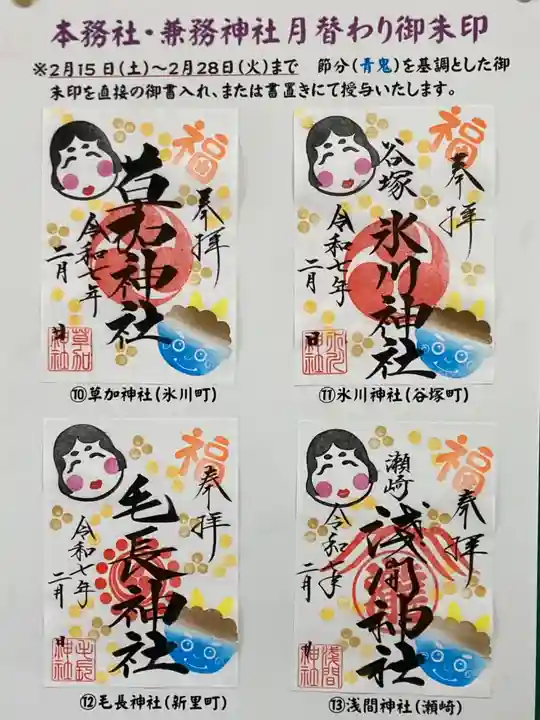 本務社・兼務神社月替わり御朱印
※2月15日(土)～2月28日(火)まで 節分(青鬼)を基調とした御
朱印を直接の御書入れ、または書置きにて授与いたします。
福
奉拝
草加神社
令和七年
二月 日
草加神社
⑩草加神社(氷川町)
福
奉拝
谷塚
氷川神社
令和七年
二月 日
⑪氷川神社(谷塚町)
福
奉拝
毛長神社
令和七年
二月 日
毛長神社
⑫毛長神社(新里町)
福
奉拝
瀬崎
浅間神社
令和七年
二月 日
浅間神社
⑬浅間神社(瀬崎)